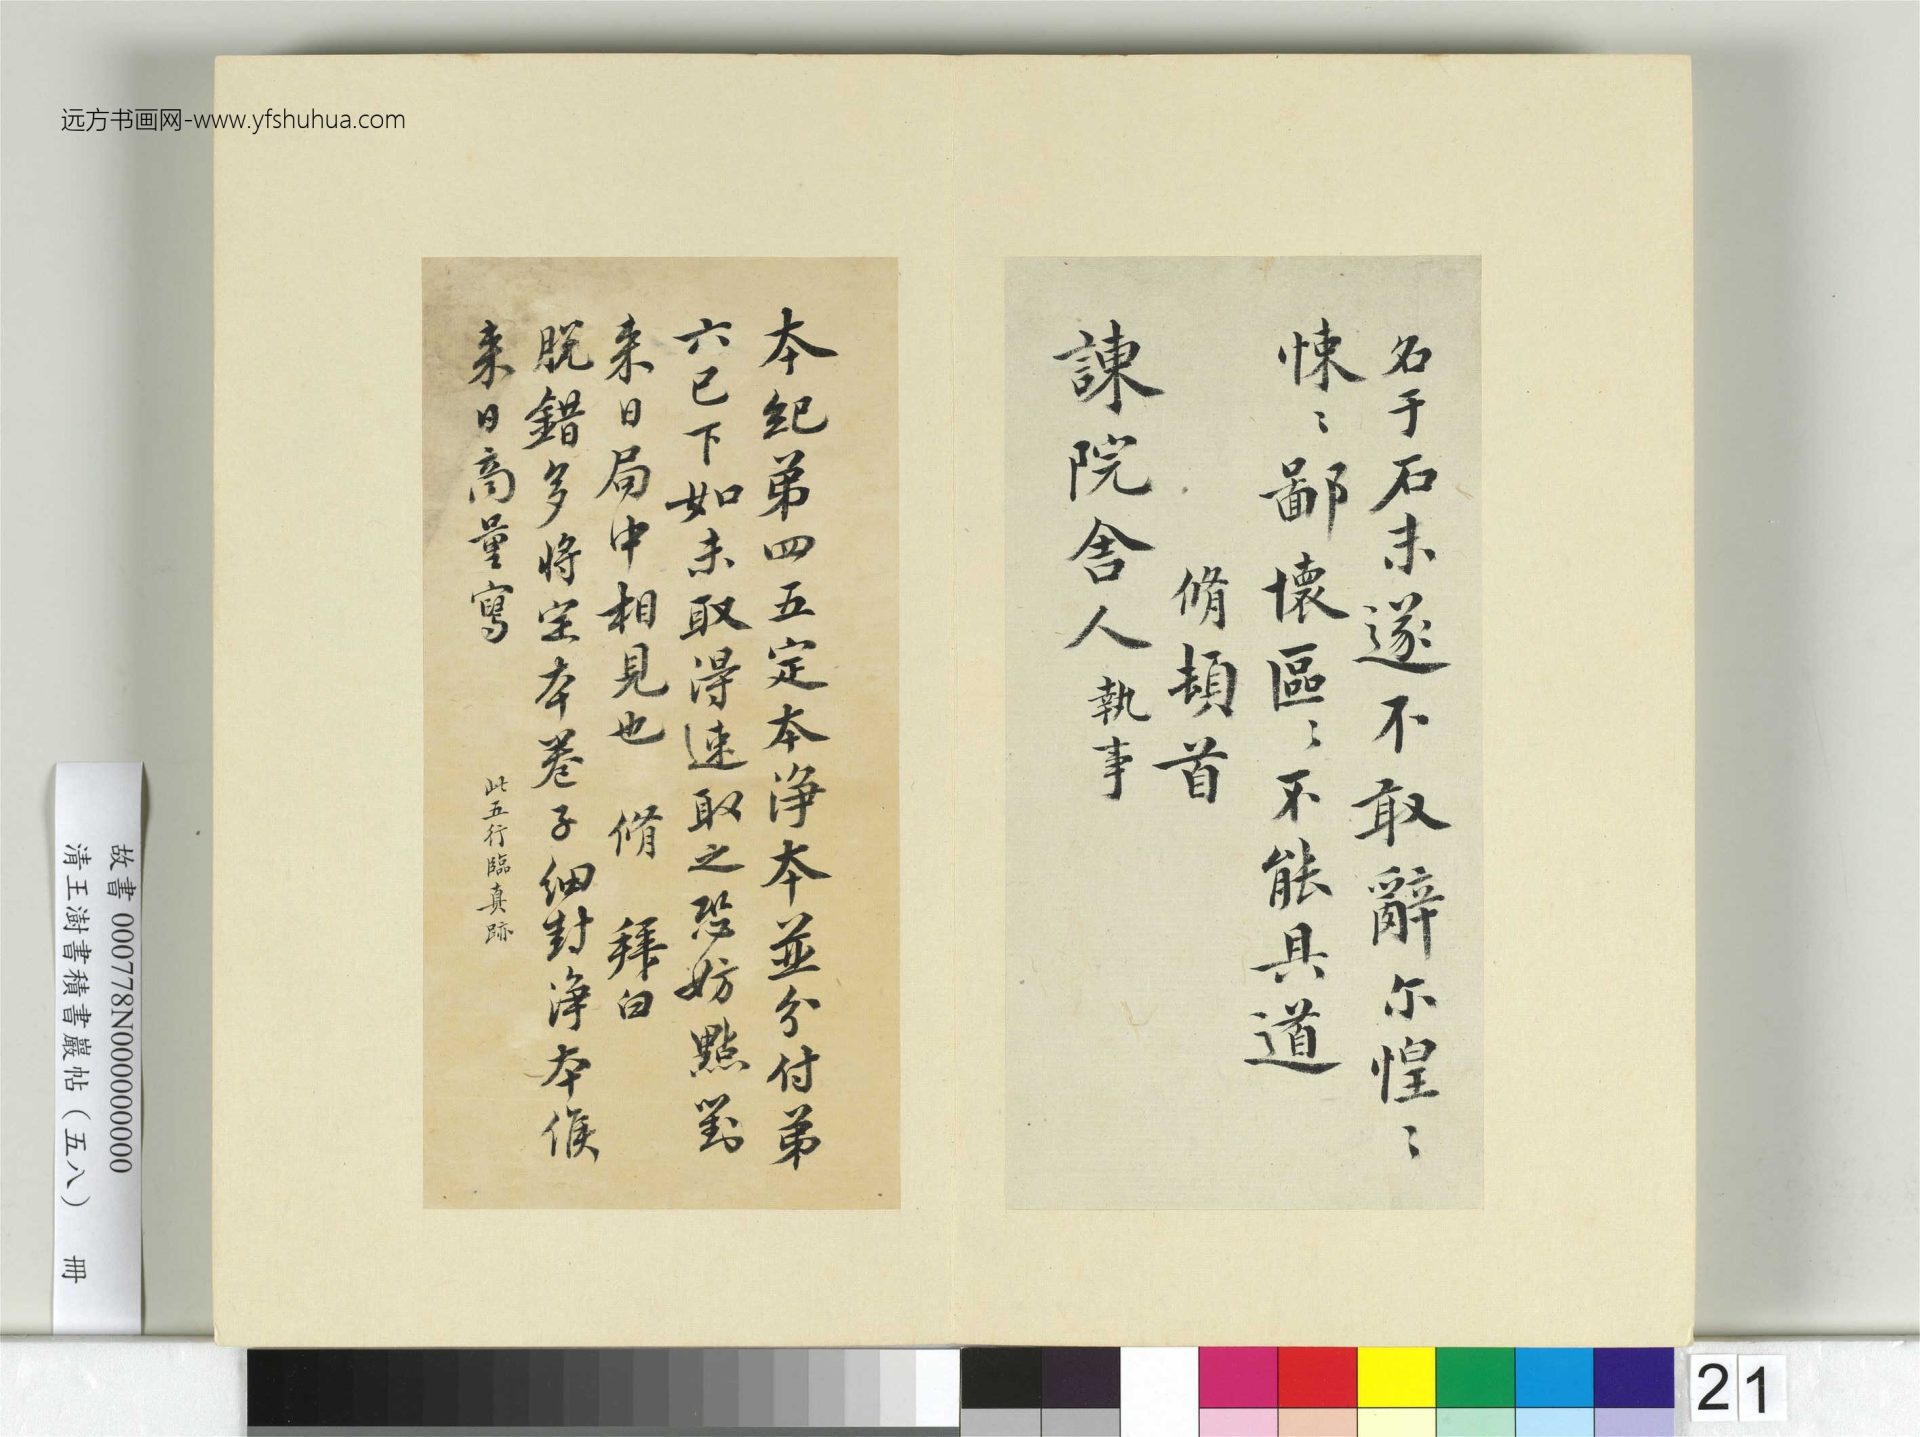 远方书画网-www.yfshuhua.com
名于石未遂不敢辭尔惶〻
悚〻鄙懷區〻不能具道
脩頓首
諫院舍人執事
本紀弟四五定本淨本並分付弟
六已下如未取得速取之恐妨點對
来日局中相見也 脩 拜白
脱錯多將定本卷子細封淨本候
来日商量寫
此五行臨真跡
故書 000778N000000000
清王澍書積書巖帖(五八) 冊
21